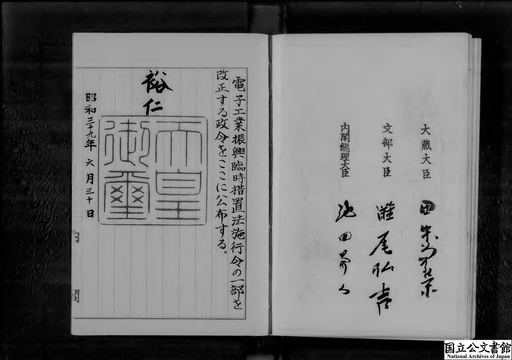 電子工業振興臨時措置法施行令の一部を
改正する政令をここに公布する。
裕仁
天皇
御璽
昭和三十九年六月三十日
内閣総理大臣
池田勇人
文部大臣
灘尾弘吉
大蔵大臣
田中角榮
国立公文書館
National Archives of Japan